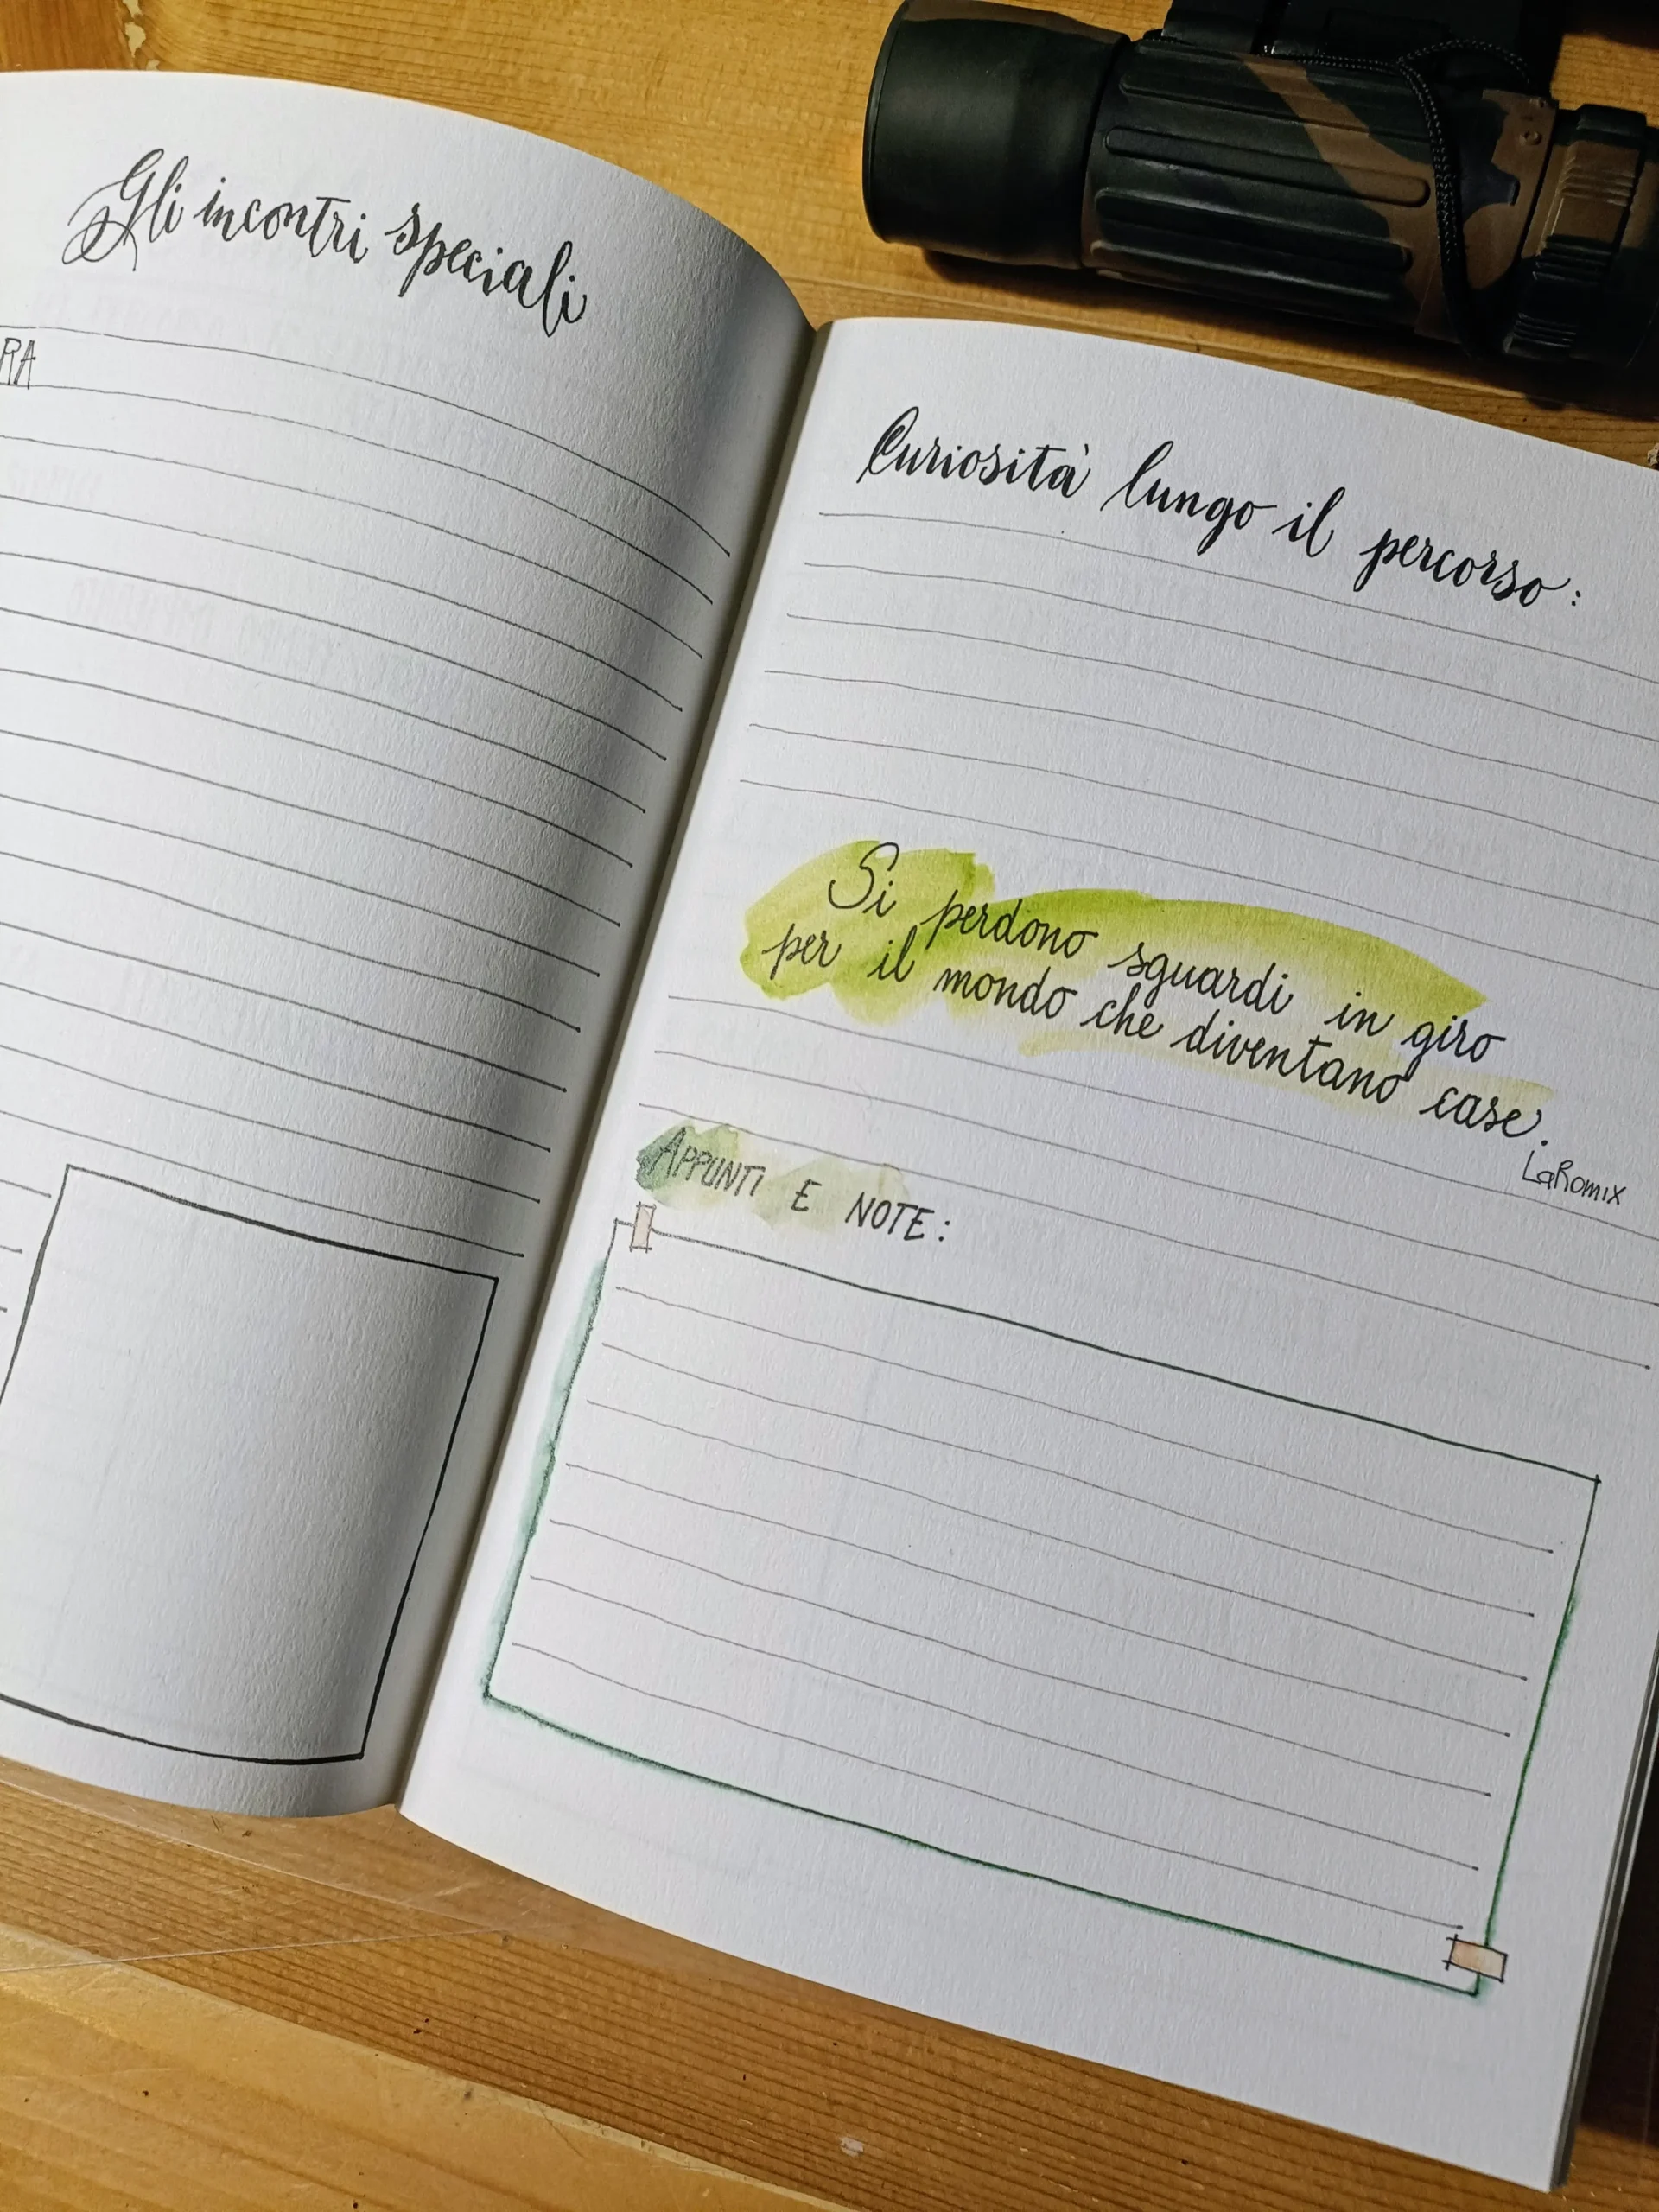 Gli incontri speciali
RA
Curiosità lungo il percorso:
Si perdono sguardi in giro
per il mondo che diventano case.
LaRomix
APPUNTI E NOTE: